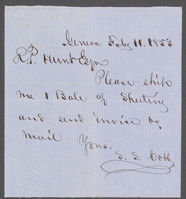 Geneva Feby 11. 1853
R.P. Hunt Esqr
Please ship
me 1 Bale of Sheeting
and send invoice by
mail
Yours.
S. S. Cobb